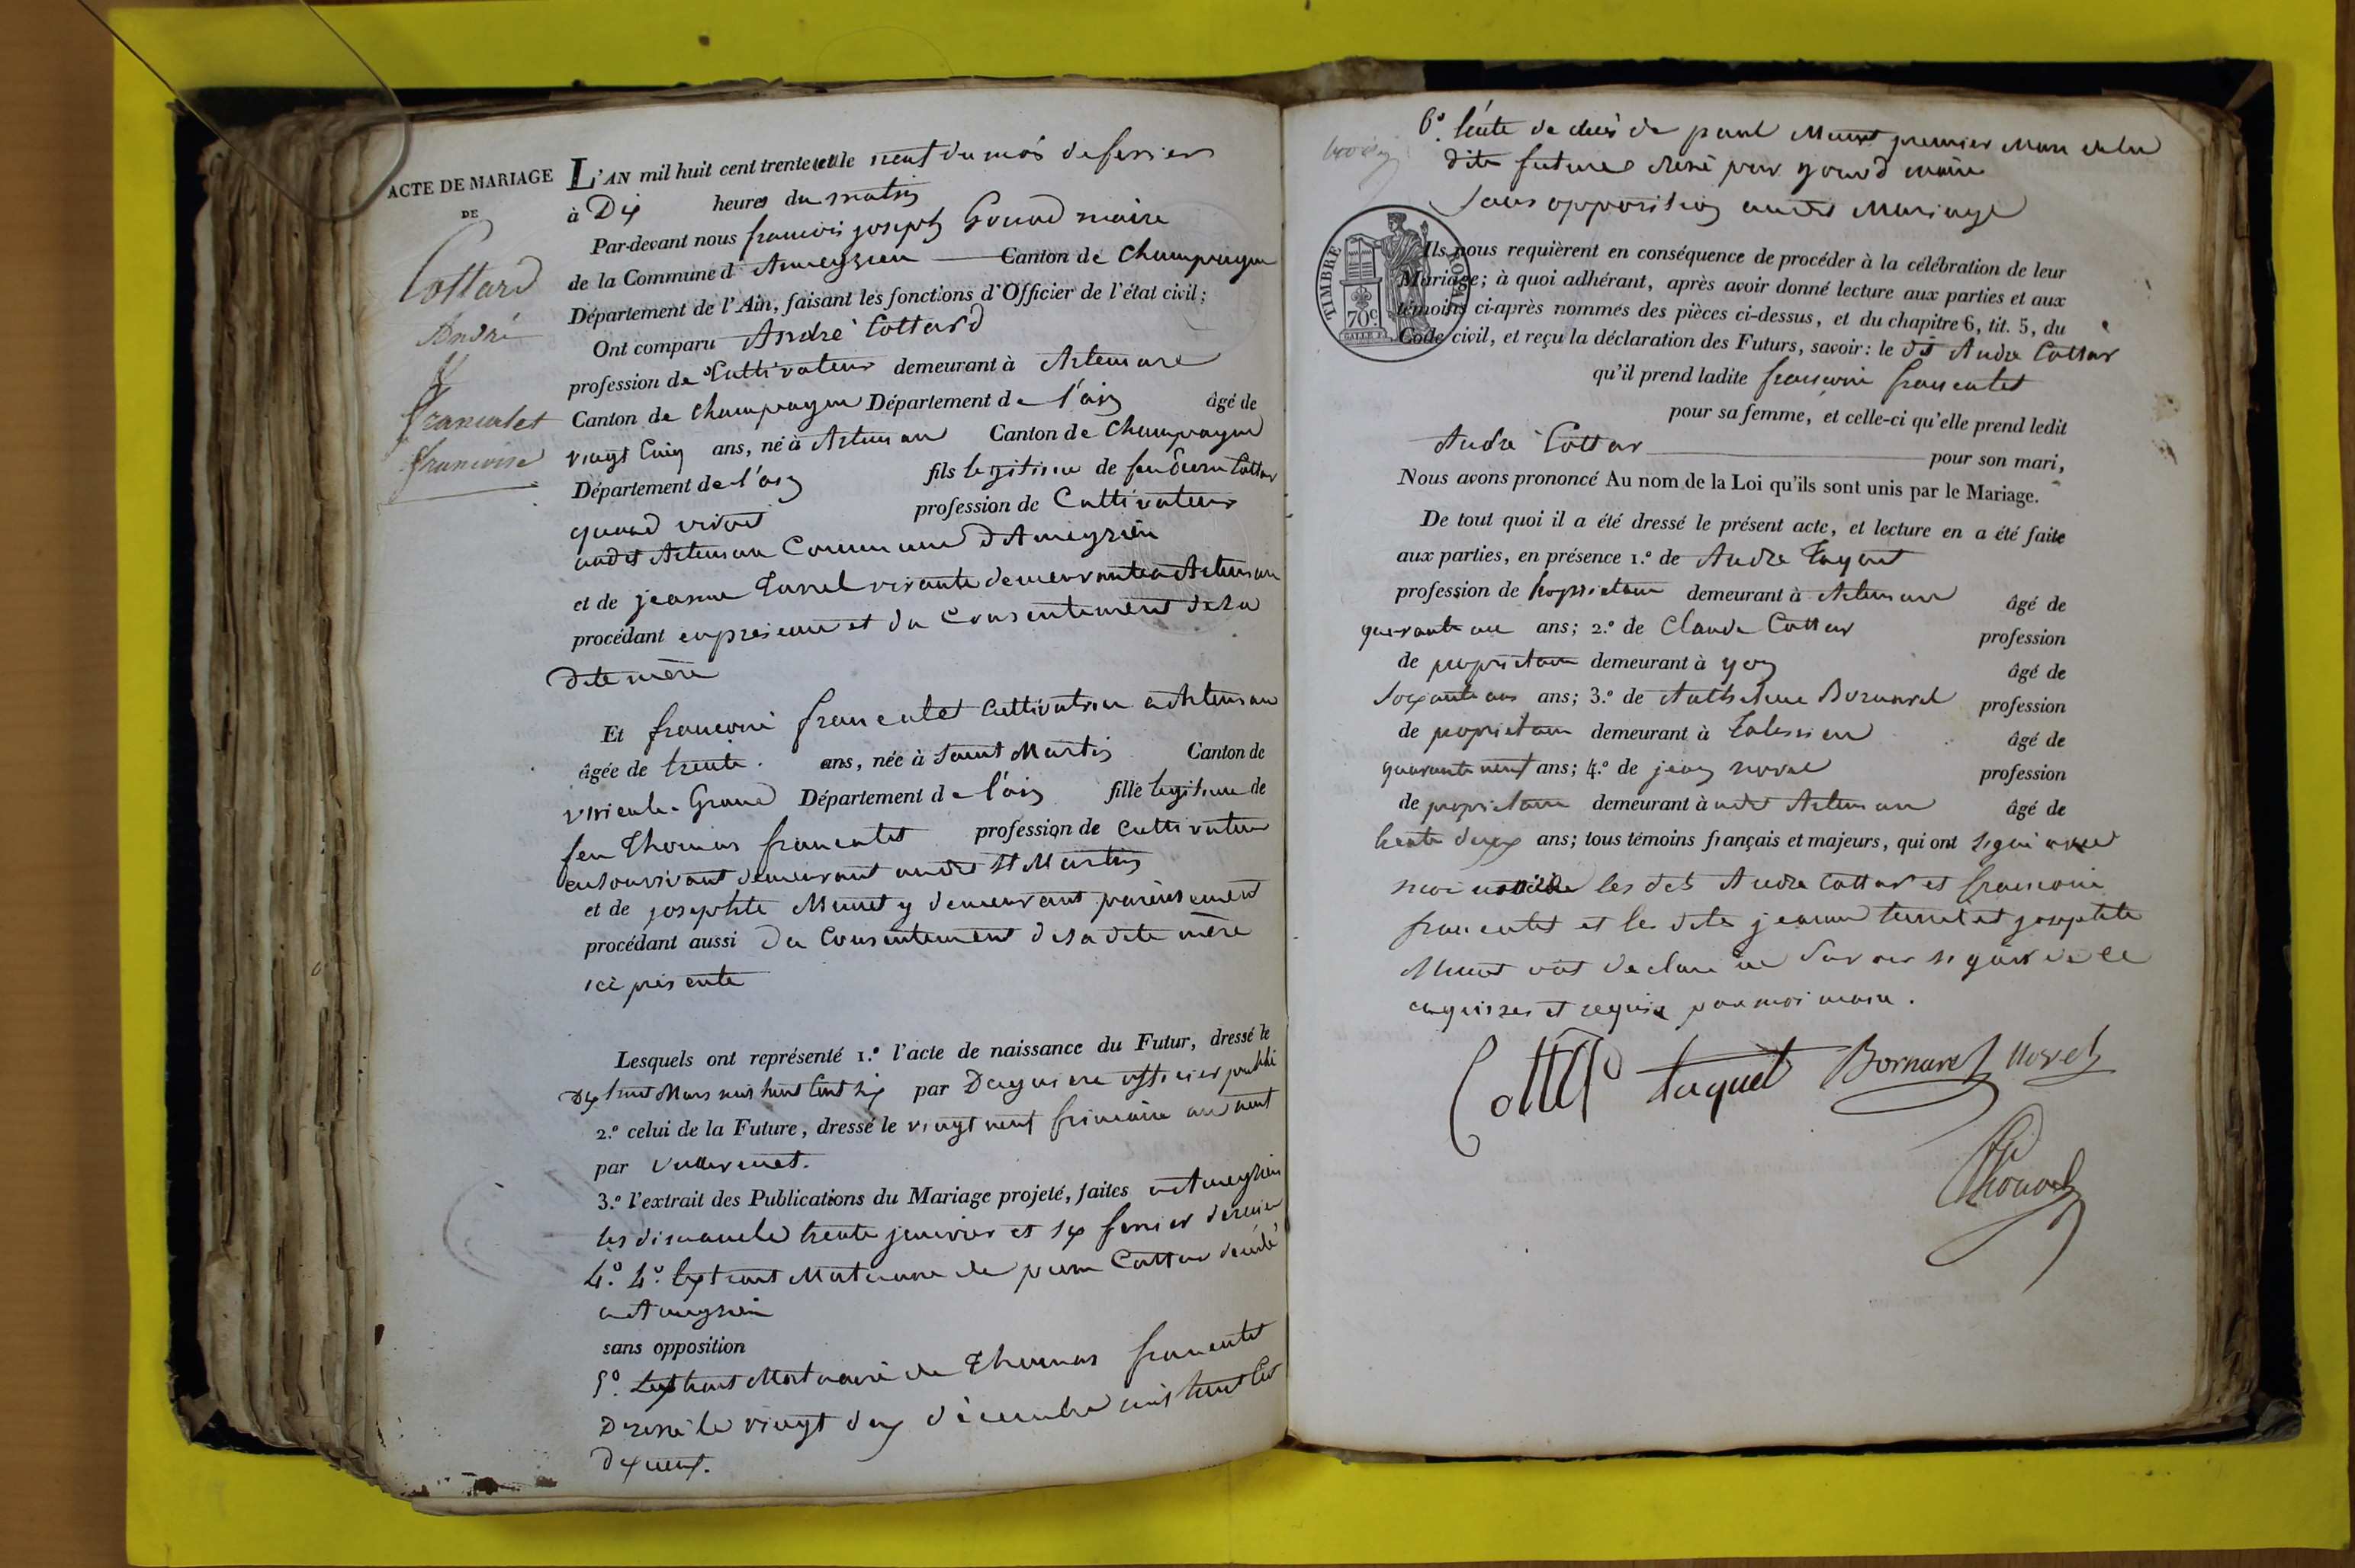 ACTE DE MARIAGE
DE
Cottard
André
&
francalet
francoise
L'AN mil huit cent trente et le neuf du mois de fevrier
à Dix heures du matin
Par-devant nous francois joseph Gonod maire
de la Commune d'Ameyzieu Canton de Champagne
Département de l'Ain, faisant les fonctions d'Officier de l'état civil;
Ont comparu André Cottard
profession de Cultivateur demeurant à Artemare
Canton de Champagne Département de l'ain âgé de
vingt Cinq ans, né à Artemare Canton de Champagne
Département de l'ain fils legitime de feu Cottar
quand vivait profession de Cultivateur
audit Artemare Commune D'Ameyzieu
et de jeanne vivante demeurante a Artemare
procédant en presence et du Consentement de sa
dite mère
Et francoise francalet Cultivatrice a Artemare
âgée de trente ans, née à Saint Martin Canton de
virieu le Grand Département de l'ain fille legitime de
feu Thomas francalet profession de Cultivateur
en son vivant demeurant audit St Martin
et de josephte Munet y demeurant
procédant aussi du Consentement de sa dite mère
ici presente
Lesquels ont représenté 1.º l'acte de naissance du Futur, dressé le
Dix huit Mars mil huit Cent six par officier public
2.º celui de la Future, dressé le vingt neuf frimaire an neuf
par
3.º l'extrait des Publications du Mariage projeté, faites a Ameyzieu
les dimanche trente janvier et six fevrier dernier
4º. 4º. lextrait Mortuaire de pierre Cottar décédé
a Ameyzieu
sans opposition
5º. Lextrait Mortuaire de Thomas francalet
Dressé le vingt deux décembre mil huit Cent
Dix neuf.
6º. l'acte de décès de paul Munet premier Mari de la
dite future dressé par gonod maire
Sans opposition audit Mariage
TIMBRE ROYAL
70c
Ils nous requièrent en conséquence de procéder à la célébration de leur
Mariage; à quoi adhérant, après avoir donné lecture aux parties et aux
témoins ci-après nommés des pièces ci-dessus, et du chapitre 6, tit. 5, du
Code civil, et reçu la déclaration des Futurs, savoir: le dit André Cottar
qu'il prend ladite francoise francalet
pour sa femme, et celle-ci qu'elle prend ledit
André Cottar pour son mari,
Nous avons prononcé Au nom de la Loi qu'ils sont unis par le Mariage.
De tout quoi il a été dressé le présent acte, et lecture en a été faite
aux parties, en présence 1.º de André
profession de proprietaire demeurant à Artemare âgé de
quarante ans; 2.º de Claude Cottar profession
de proprietaire demeurant à yon âgé de
Soixante ans; 3.º de Anthelme Bornarel profession
de proprietaire demeurant à Talissieu âgé de
quarante neuf ans; 4.º de jean profession
de proprietaire demeurant à audit Artemare âgé de
trente deux ans; tous témoins français et majeurs, qui ont signé avec
moi les dits André Cottar et francoise
francalet et les dites jeanne et josephte
Munet ont declaré ne Savoir signer de ce
enquises et requis par moi maire.
Cottar Taquet Bornarel
Gonod